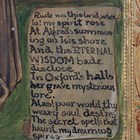 Rude was this land when
to my spirit rose
At Alfred's summon-
ing on Isis shore
And the ETERNAL
WISDOM bade
disclose
In Oxford's halls
her grave mysterious
lore.
Alas! poor world thy
weary soul destroy
The secret spells that
haunt my dreaming
spires